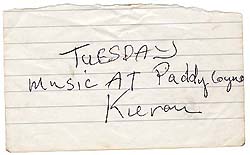 TUESDAY
music AT Paddy Coyne
Kieran